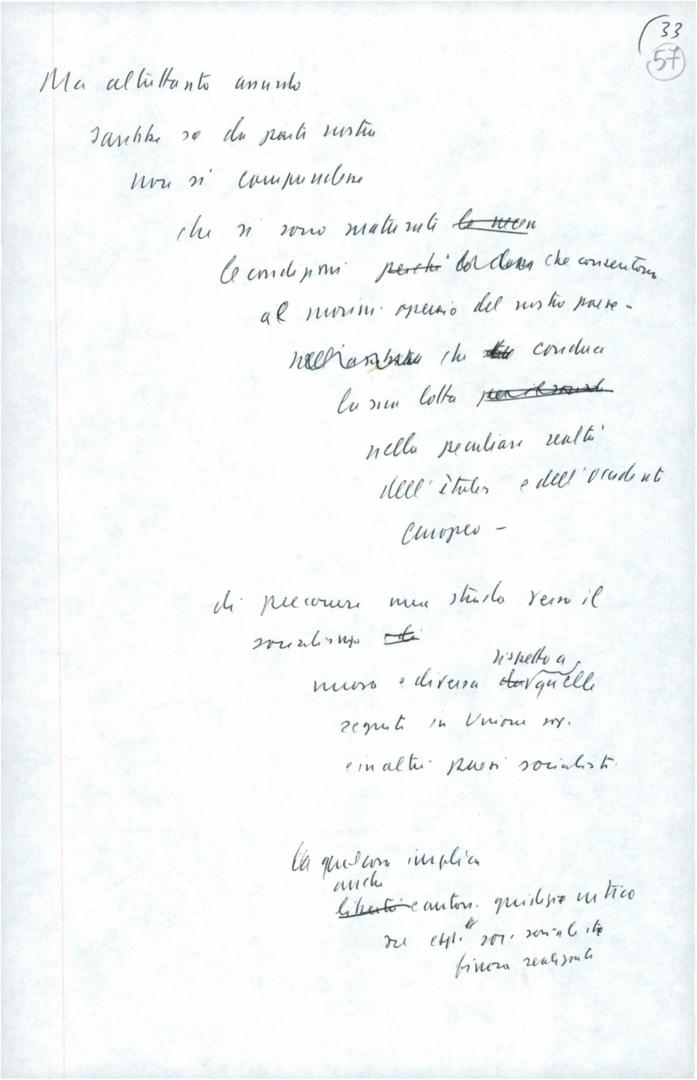 33
57
Ma altrettanto assurdo
sarebbe se da parte nostra
non si comprendesse
che si sono maturate
le condizioni perché che consentono
al movim. operaio del nostro paese -
che conduce
la sua lotta
nella peculiare realtà
dell'Italia e dell'occidente
Europeo -
di percorrere una strada verso il
socialismo
rispetto a
nuova e diversa quelle
seguite in Unione sov.
e in altri paesi socialisti.
La qual cosa implica
anche
libertà e auton. giudizio critico
su esp. soc. socialiste
finora realizzate